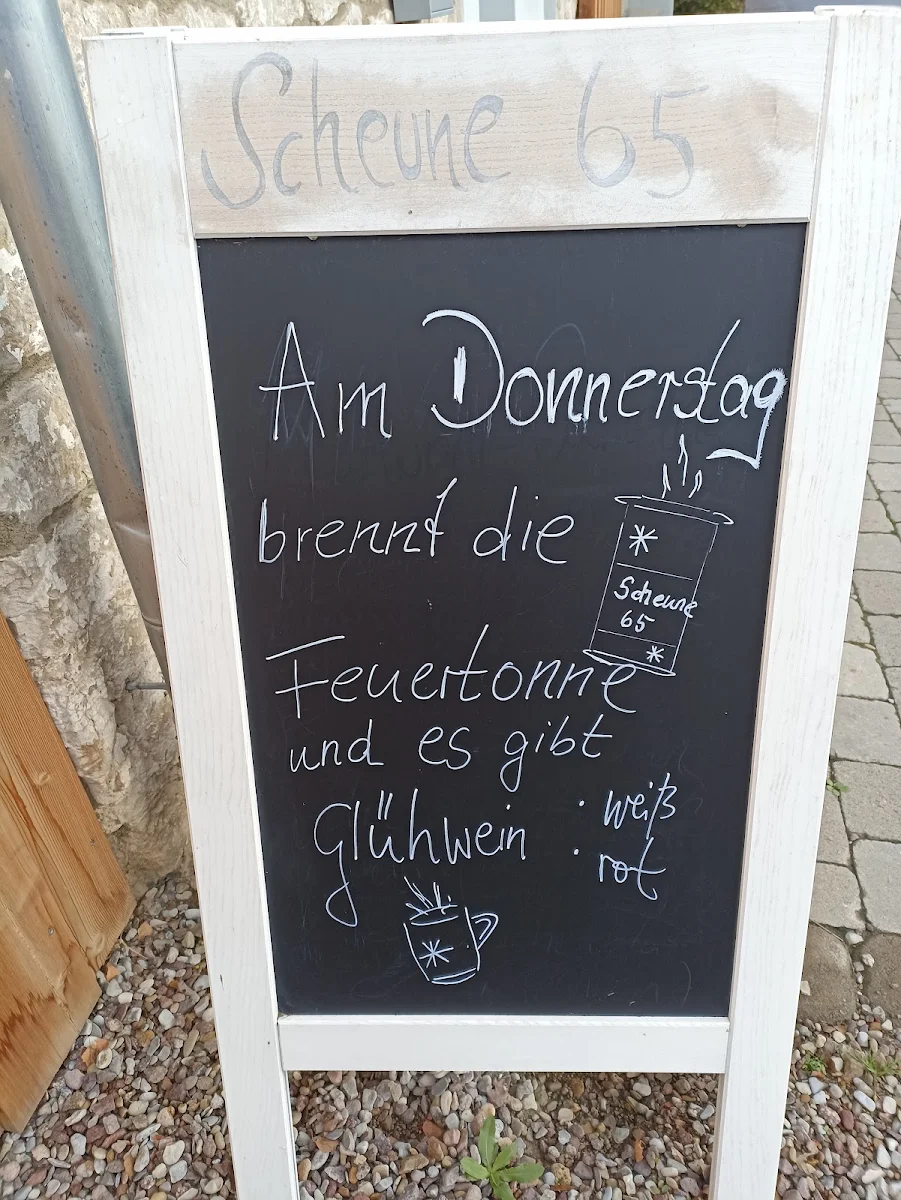 Scheune 65
Am Donnerstag
brennt die
Scheune
65
Feuertonne
und es gibt
Glühwein · weiß
· rot